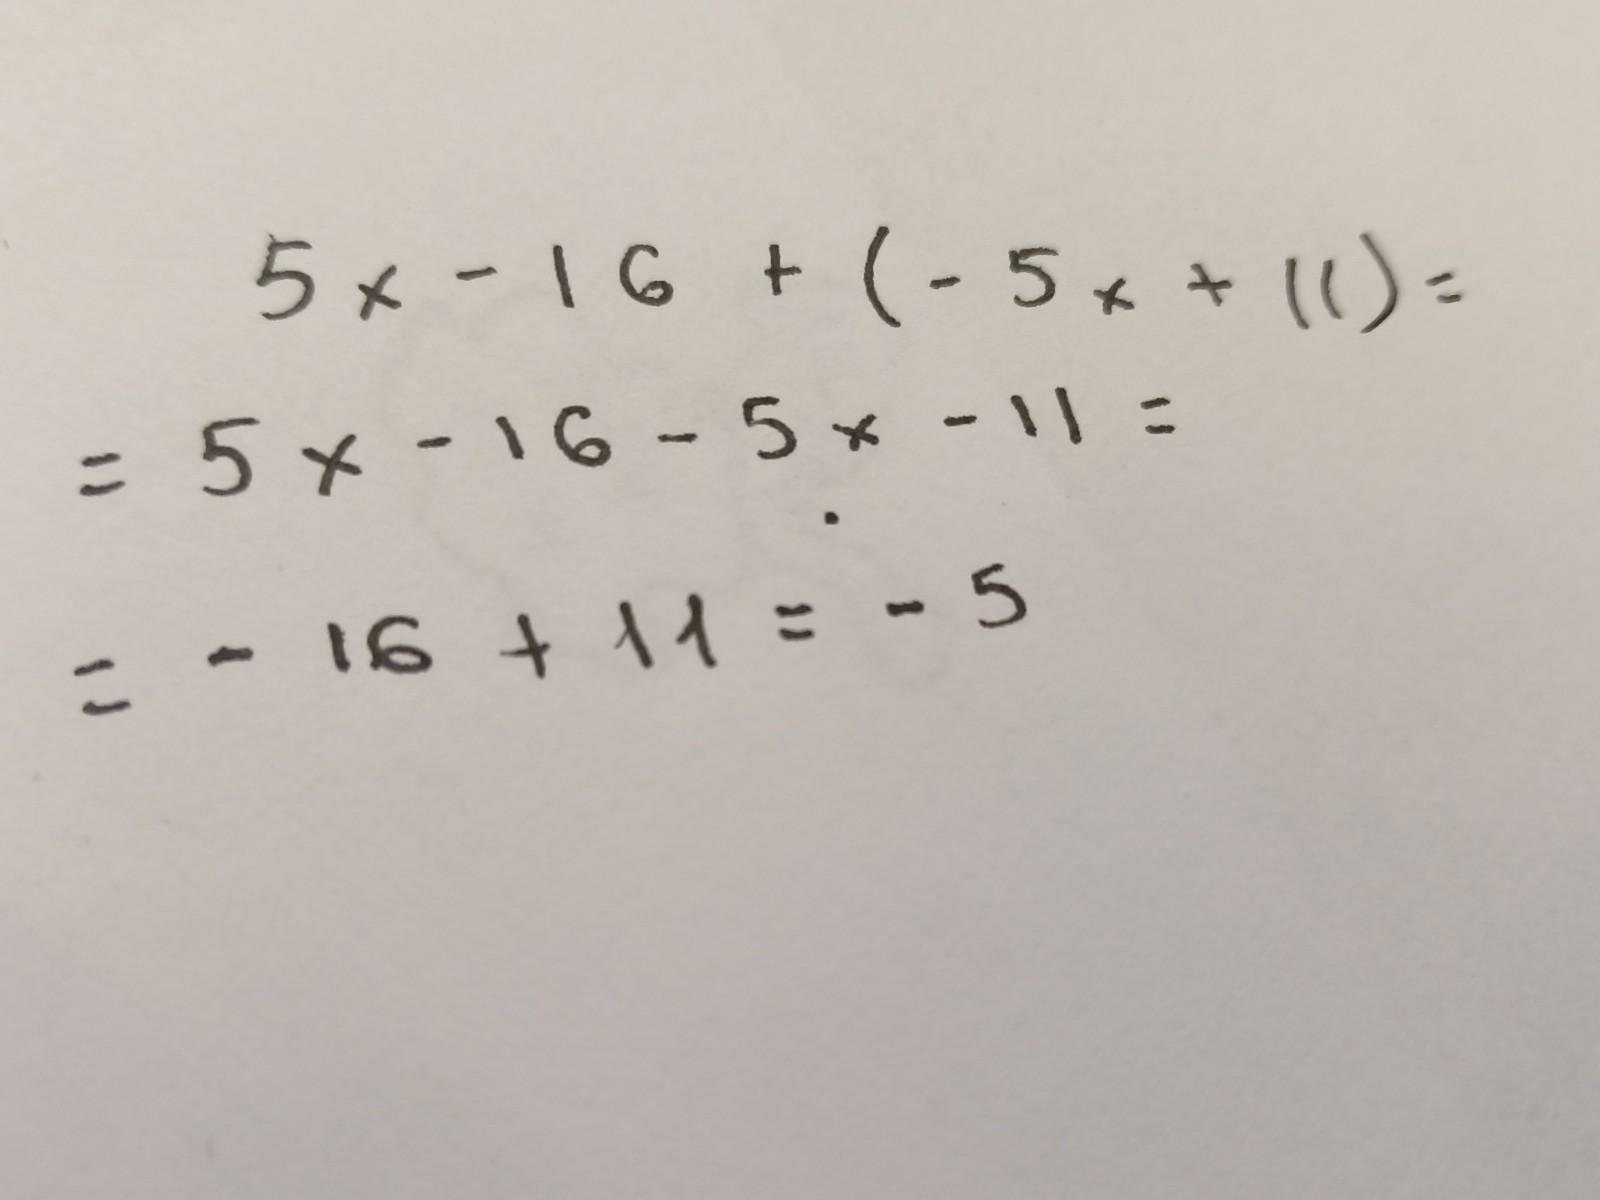 5x - 16 + (- 5x + 11) =
= 5x - 16 - 5x - 11 =
= - 16 + 11 = - 5